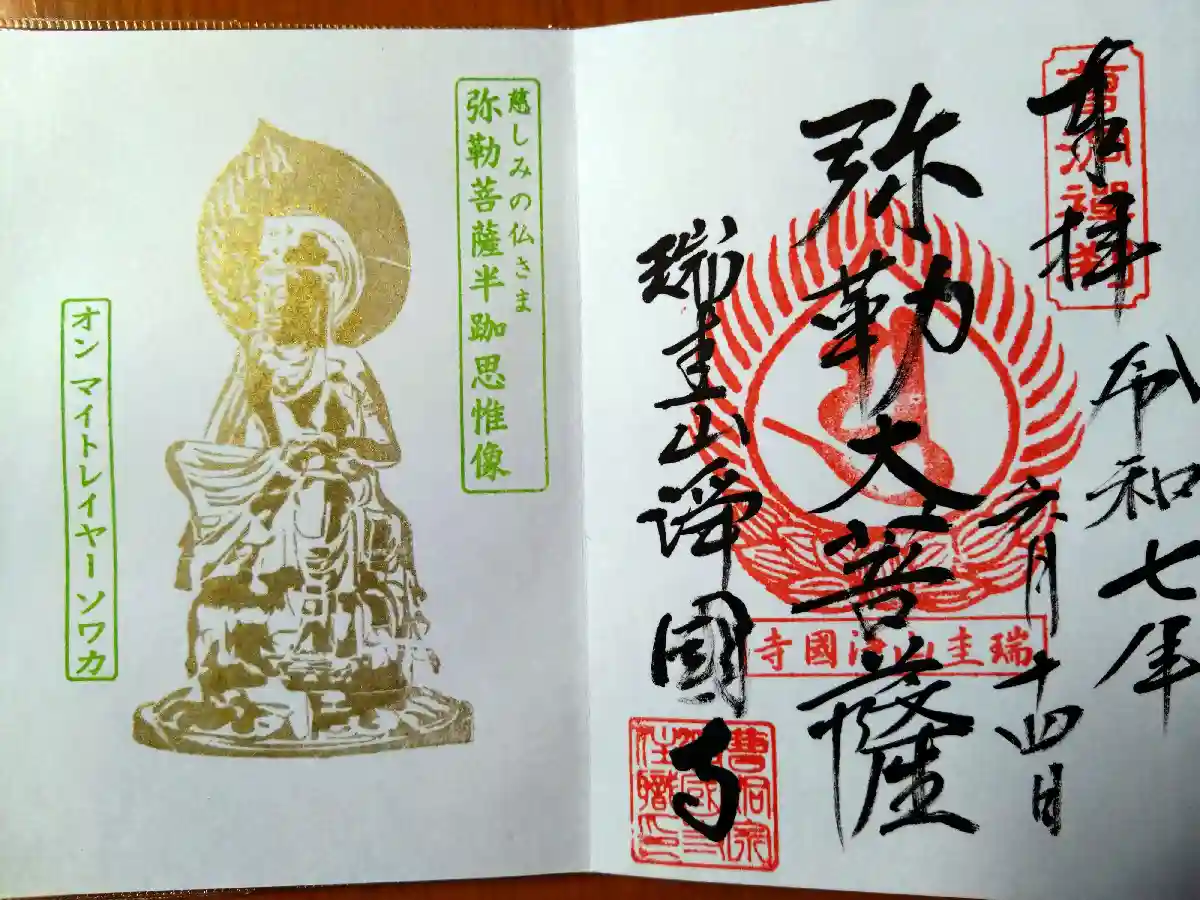 奉拝
令和七年
六月十四日
弥勒大菩薩
瑞圭山 國寺
慈しみの仏さま
弥勒菩薩半跏思惟像
オン マイトレイヤー ソワカ